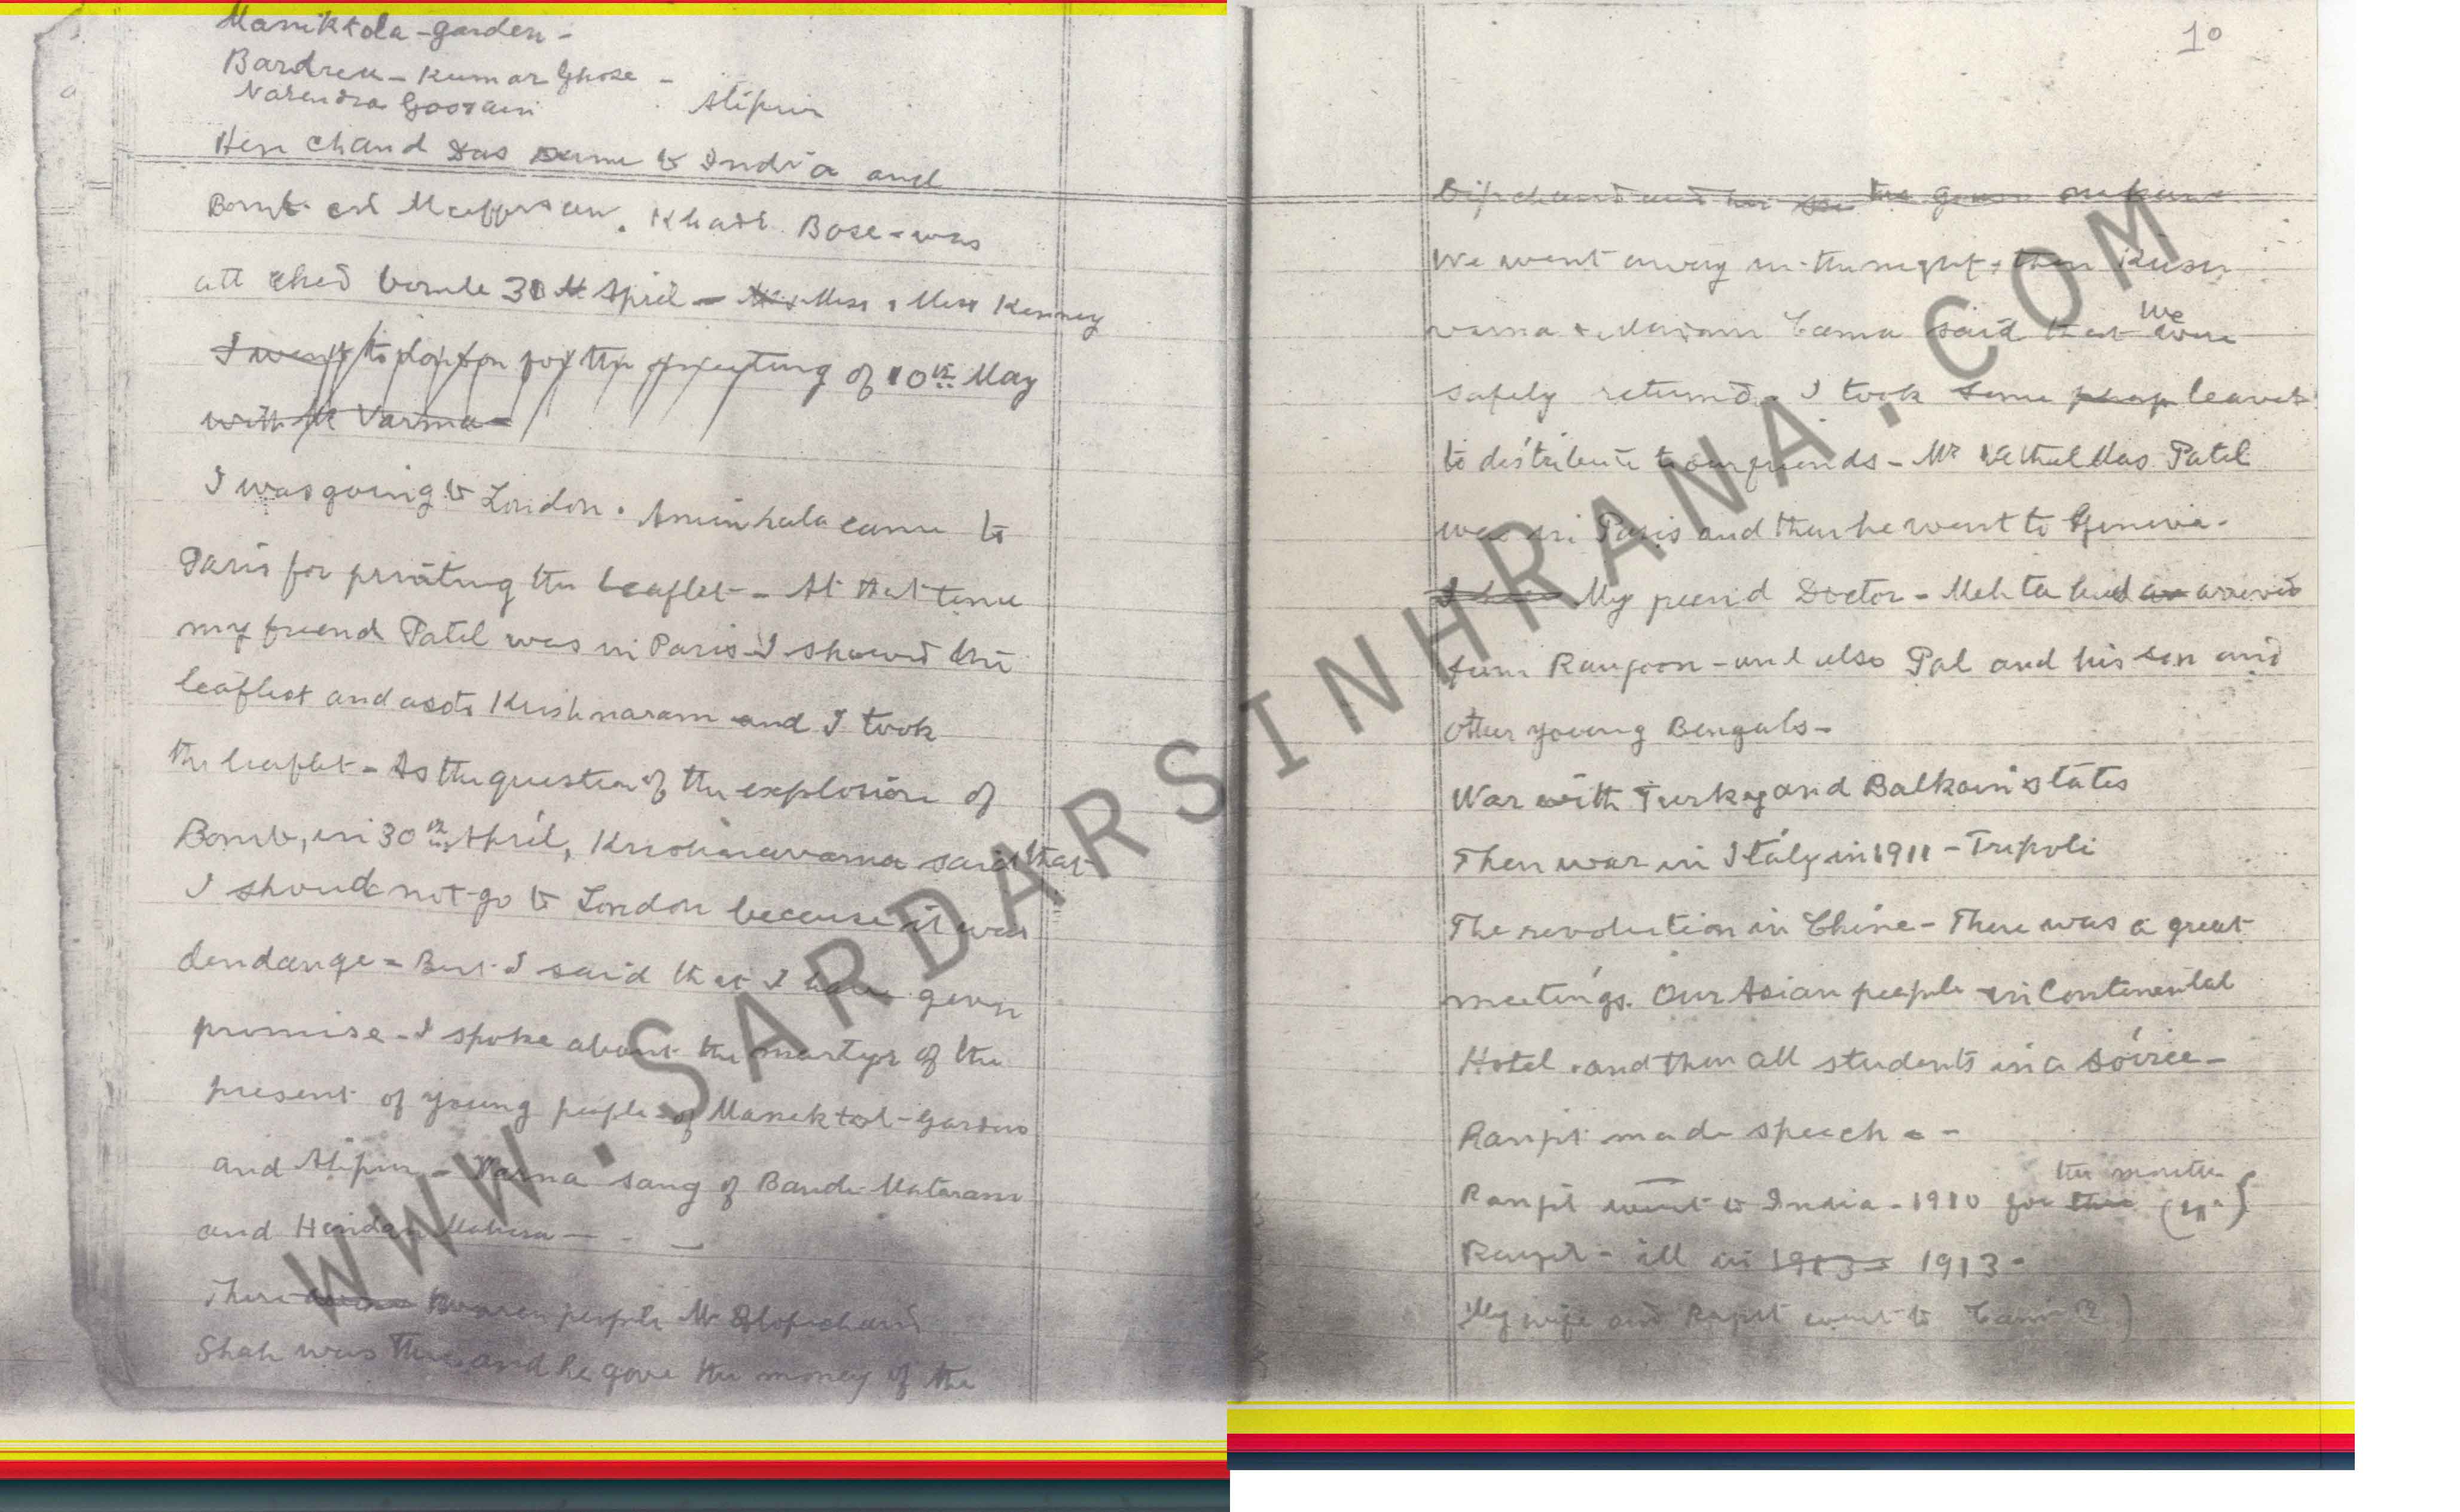 Maniktola-garden-
Bardren-Kumar Ghose -
Narendra Goosain
Alipur
Hem Chand Das came to India and
Bomb . Khadi Bose - was
att cked bombe 30th April - Miss & Miss Kenney
I went to London for the meeting of 10th May
with Mr Varma-
I was going to London. Amin came to
Paris for printing the leaflet - At that time
my friend Patel was in Paris-I showed the
leaflest and asots Krishnaram and I took
the leaflet - As the question of the explosion of
Bomb, in 30th April, Krishnavarma said that
I shoud not-go to London because it was
dendange - But I said that I have given
promise - I spoke about the martyr of the
present of young people of Manektol-Garden
and Alipur - Varma sang of Bande Mataram
and
There people Mr
Shah was there and he gave the money of the
10
We went away in the night, then Kris
varma & Madam Cama said that we were
safely returned. I took some leavet
to distribute to our friends - Mr Vethuldas Patel
was in Paris and then he went to Geneva.
My freind Doctor - Mehta had arrived
from Rangoon - and also Pal and his son and
other young Bengals-
War with Turkey and Balkain states
Then war in Italy in 1911 - Tripoli
The revolution in Chine - There was a great
meetings. Our Asian people in Continental
Hotel . and then all students in a Soirée-
Ranjit made speech - -
Ranjit went to India - 1910 for
Ranjit - ill in 1913 - 1913 -
My wife and Ranjit went to
WWW.SARDARSINHRANA.COM